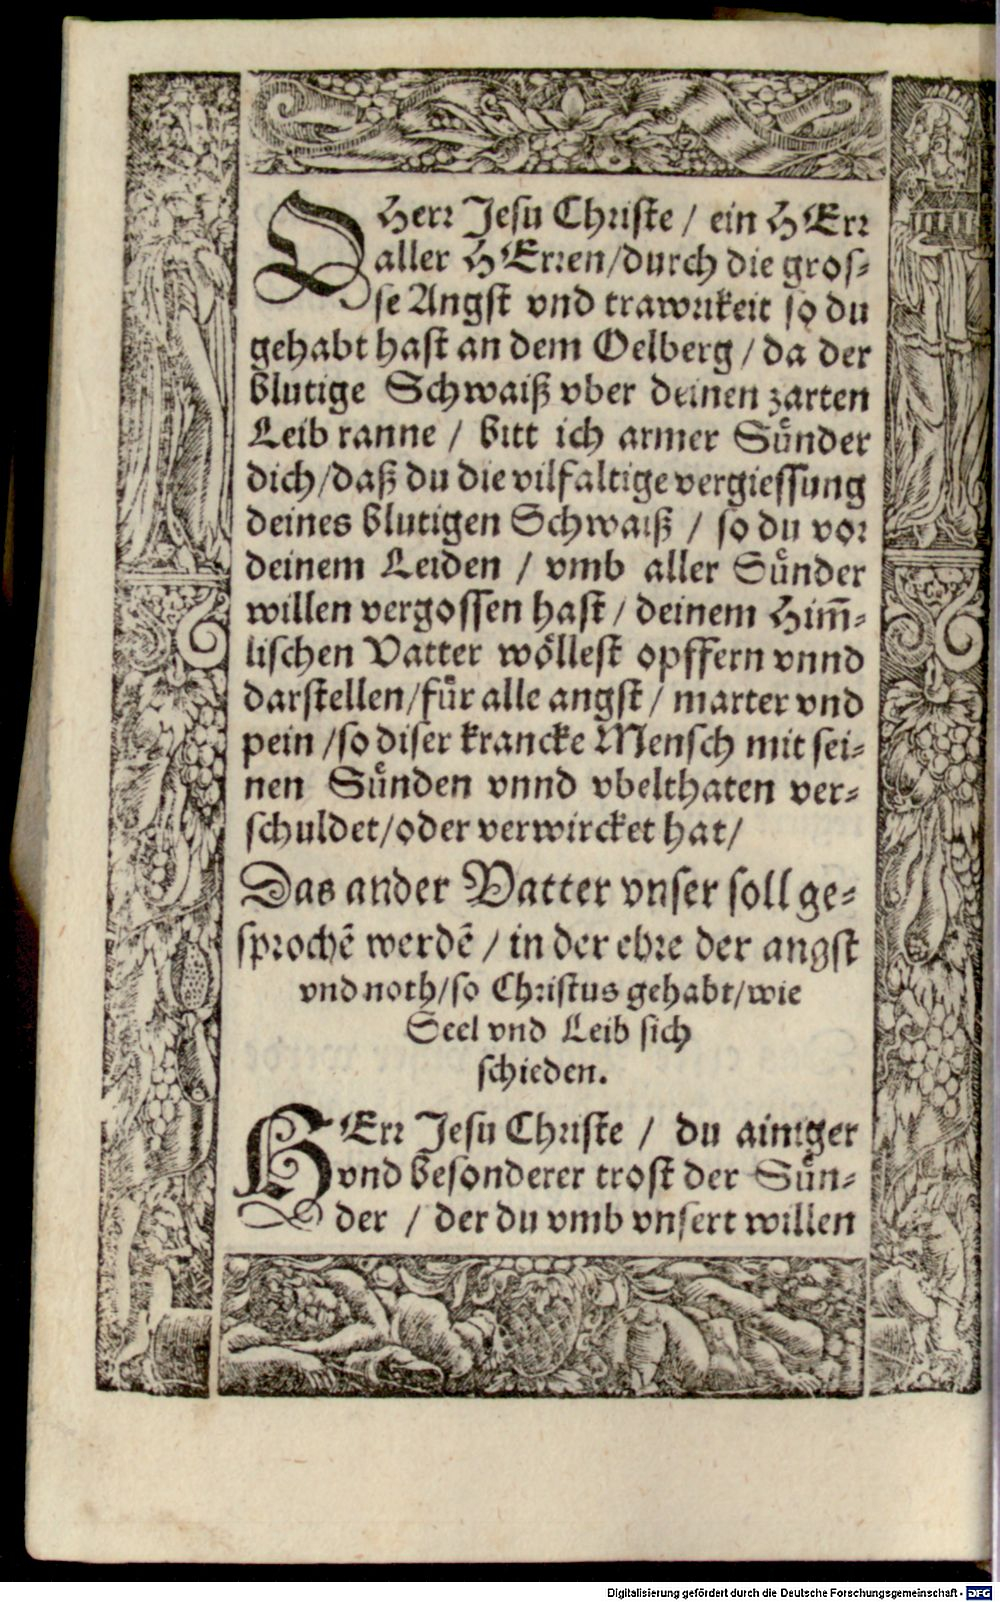 O Herr Jesu Christe / ein HErr
aller HErren/durch die gros-
se Angst vnd trawrikeit so du
gehabt hast an dem Oelberg / da der
blutige Schwaiß vber deinen zarten
Leib ranne / bitt ich armer Sünder
dich/daß du die vilfaltige vergiessung
deines blutigen Schwaiß / so du vor
deinem Leiden / vmb aller Sünder
willen vergossen hast / deinem Him̃-
lischen Vatter wöllest opffern vnnd
darstellen/für alle angst / marter vnd
pein /so diser krancke Mensch mit sei-
nen Sünden vnnd vbelthaten ver-
schuldet/oder verwircket hat/
Das ander Vatter vnser soll ge-
sprochẽ werdẽ / in der ehre der angst
vnd noth/so Christus gehabt/wie
Seel vnd Leib sich
schieden.
HErr Jesu Christe / du ainiger
vnd besonderer trost der Sün-
der / der du vmb vnsert willen
Digitalisierung gefördert durch die Deutsche Forschungsgemeinschaft - DFG